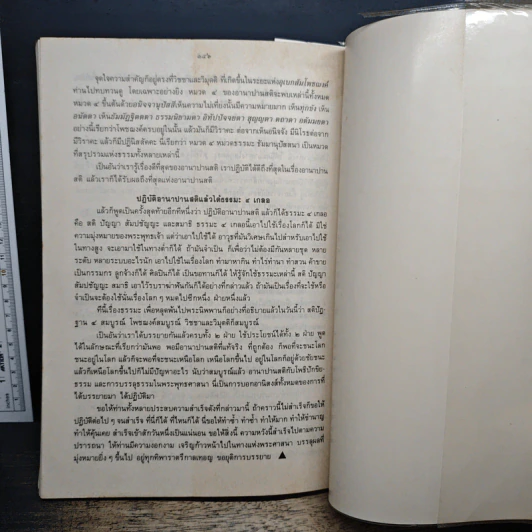 ๑๔๖
จุดใจความสำคัญก็อยู่ตรงที่วิชชาและวิมุตติ ที่เกิดขึ้นในระยะแห่งอุเบกขสัมโพชฌงค์
ท่านไปทบทวนดู โดยเฉพาะอย่างยิ่ง หมวด ๔ ของอานาปานสติจะพบเหล่านี้ทั้งหมด
หมวด ๔ ขึ้นต้นด้วยอนิจจานุปัสสีเห็นความไม่เที่ยงนั้นมีความหมายมาก เห็นทุกขัง เห็น
อนัตตา เห็นธัมมัฏฐิตตตา ธรรมนิยามตา อิทัปปัจจยตา สุญญตา ตถาตา อตัมมยตา
อย่างนี้เรียกว่าโพชฌงค์ครบอยู่ในนั้น แล้วมันก็มีวิราคะ ต่อจากเห็นอนิจจัง มีนิโรธต่อจาก
มีวิราคะ แล้วก็มีปฏินิสสัคคะ นี่เรียกว่า หมวด ๔ หมวดธรรมะ ธัมมานุปัสสนา เป็นหมวด
ที่สรุปรวมแห่งธรรมทั้งหลายเหล่านี้
เป็นอันว่าเรารู้เรื่องดีที่สุดของอานาปานสติ เราปฏิบัติได้ดีถึงที่สุดในเรื่องอานาปาน
สติ แล้วเราก็ได้รับผลถึงที่สุดแห่งอานาปานสติ
ปฏิบัติอานาปานสติแล้วได้ธรรมะ ๔ เกลอ
แล้วก็พูดเป็นครั้งสุดท้ายอีกทีหนึ่งว่า ปฏิบัติอานาปานสติ แล้วก็ได้ธรรมะ ๔ เกลอ
คือ สติ ปัญญา สัมปชัญญะ และสมาธิ ธรรมะ ๔ เกลอนี้เอาไปใช้เรื่องโลกก็ได้ มิใช่
ความมุ่งหมายของพระพุทธเจ้า แต่ว่าเอาไปใช้ได้ อาวุธที่มันวิเศษเกินไปสำหรับเอาไปใช้
ในทางสูง จะเอามาใช้ในทางต่ำก็ได้ ถ้ามันจำเป็น ก็เพื่อว่าไม่ต้องมีกันหลายชุด หลาย
ระดับ หลายระบบอะไรนัก เอาไปใช้ในเรื่องโลก ทำมาหากิน ทำไร่ทำนา ทำสวน ค้าขาย
เป็นกรรมกร ลูกจ้างก็ได้ ศิลปินก็ได้ เป็นขอทานก็ได้ ให้รู้จักใช้ธรรมะเหล่านี้ สติ ปัญญา
สัมปชัญญะ สมาธิ เอาไว้รบราฆ่าฟันกันก็ได้อย่างที่กล่าวแล้ว ถ้ามันเป็นเรื่องที่จะใช้หรือ
จำเป็นจะต้องใช้นั่นเรื่องโลก ๆ หมดไปซีกหนึ่ง ฝ่ายหนึ่งแล้ว
ทีนี้เรื่องธรรมะ เพื่อหลุดพ้นไปพระนิพพานก็อย่างที่อธิบายแล้วในวันนี้ว่า สติปัฏ-
ฐาน ๔ สมบูรณ์ โพชฌงค์สมบูรณ์ วิชชาและวิมุตติก็สมบูรณ์
เป็นอันว่าเราได้บรรยายกันแล้วครบทั้ง ๒ ฝ่าย ใช้ประโยชน์ได้ทั้ง ๒ ฝ่าย พูด
ได้ในลักษณะที่เรียกว่ามันพอ พอมีอานาปานสติที่แท้จริง ที่ถูกต้อง ก็พอที่จะชนะโลก
ชนะอยู่ในโลก แล้วก็จะพอที่จะชนะเหนือโลก เหนือโลกขึ้นไป อยู่ในโลกก็อยู่ด้วยชัยชนะ
แล้วก็เหนือโลกขึ้นไปก็ไม่มีปัญหาอะไร นับว่าสมบูรณ์แล้ว อานาปานสติกับโพธิปักขิย-
ธรรม และการบรรลุธรรมในพระพุทธศาสนา นี่เป็นการบอกอานิสงส์ทั้งหมดของการที่
ได้บรรยายมา ได้ปฏิบัติมา
ขอให้ท่านทั้งหลายประสบความสำเร็จดังที่กล่าวมานี้ ถ้าคราวนี้ไม่สำเร็จก็ขอให้
ปฏิบัติต่อไป ๆ จนสำเร็จ ที่นี่ก็ได้ ที่ไหนก็ได้ นี่ขอให้ทำซ้ำ ทำซ้ำ ทำให้มาก ทำให้ชำนาญ
ทำให้คุ้นเคย สำเร็จเข้าสักวันหนึ่งเป็นแน่นอน ขอให้สิ่งนี้ ความหวังนี้สำเร็จไปตามความ
ปรารถนา ให้ท่านมีความงอกงาม เจริญก้าวหน้าไปในทางแห่งพระศาสนา บรรลุผลที่
มุ่งหมายยิ่ง ๆ ขึ้นไป อยู่ทุกทิพาราตรีกาลเทอญ ขอยุติการบรรยาย ▲